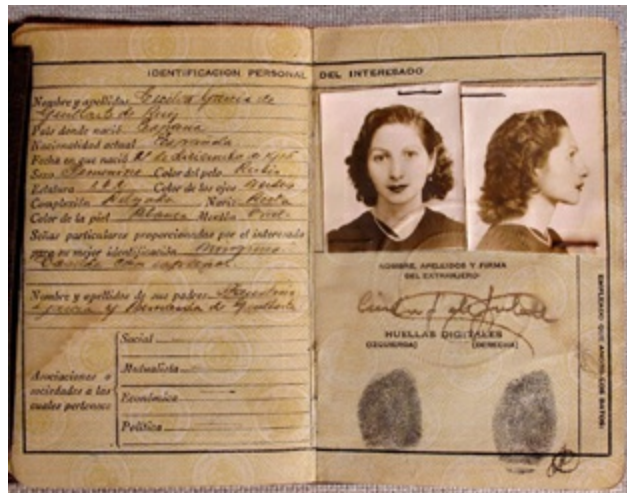 IDENTIFICACION PERSONAL DEL INTERESADO
Nombre y apellidos Cecilia García de
Guilarte de Ruiz
País donde nació España
Nacionalidad actual Española
Fecha en que nació de diciembre
Sexo Femenino Color del pelo Rubio
Estatura Color de los ojos Verdes
Complexión Delgada Nariz Recta
Color de la piel Blanca Mentón Oval
Señas particulares proporcionadas por el interesado
para su mejor identificación Ninguna
Casada con español
Nombre y apellidos de sus padres
García y de Guilarte
Asociaciones o
sociedades a las
cuales pertenece
Social
Mutualista
Económica
Política
NOMBRE, APELLIDOS Y FIRMA
DEL EXTRANJERO
HUELLAS DIGITALES
(IZQUIERDA) (DERECHA)
EMPLEADO QUE ANOTO LOS DATOS: